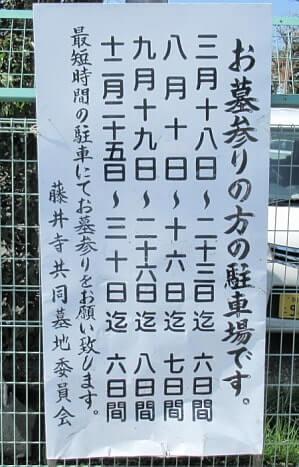 お墓参りの方の駐車場です。
三月十八日～二十三日迄 六日間
八月十日～十六日迄 七日間
九月十九日～二十六日迄 八日間
十二月二十五日～三十日迄 六日間
最短時間の駐車にてお墓参りをお願い致します。
藤井寺共同墓地委員会